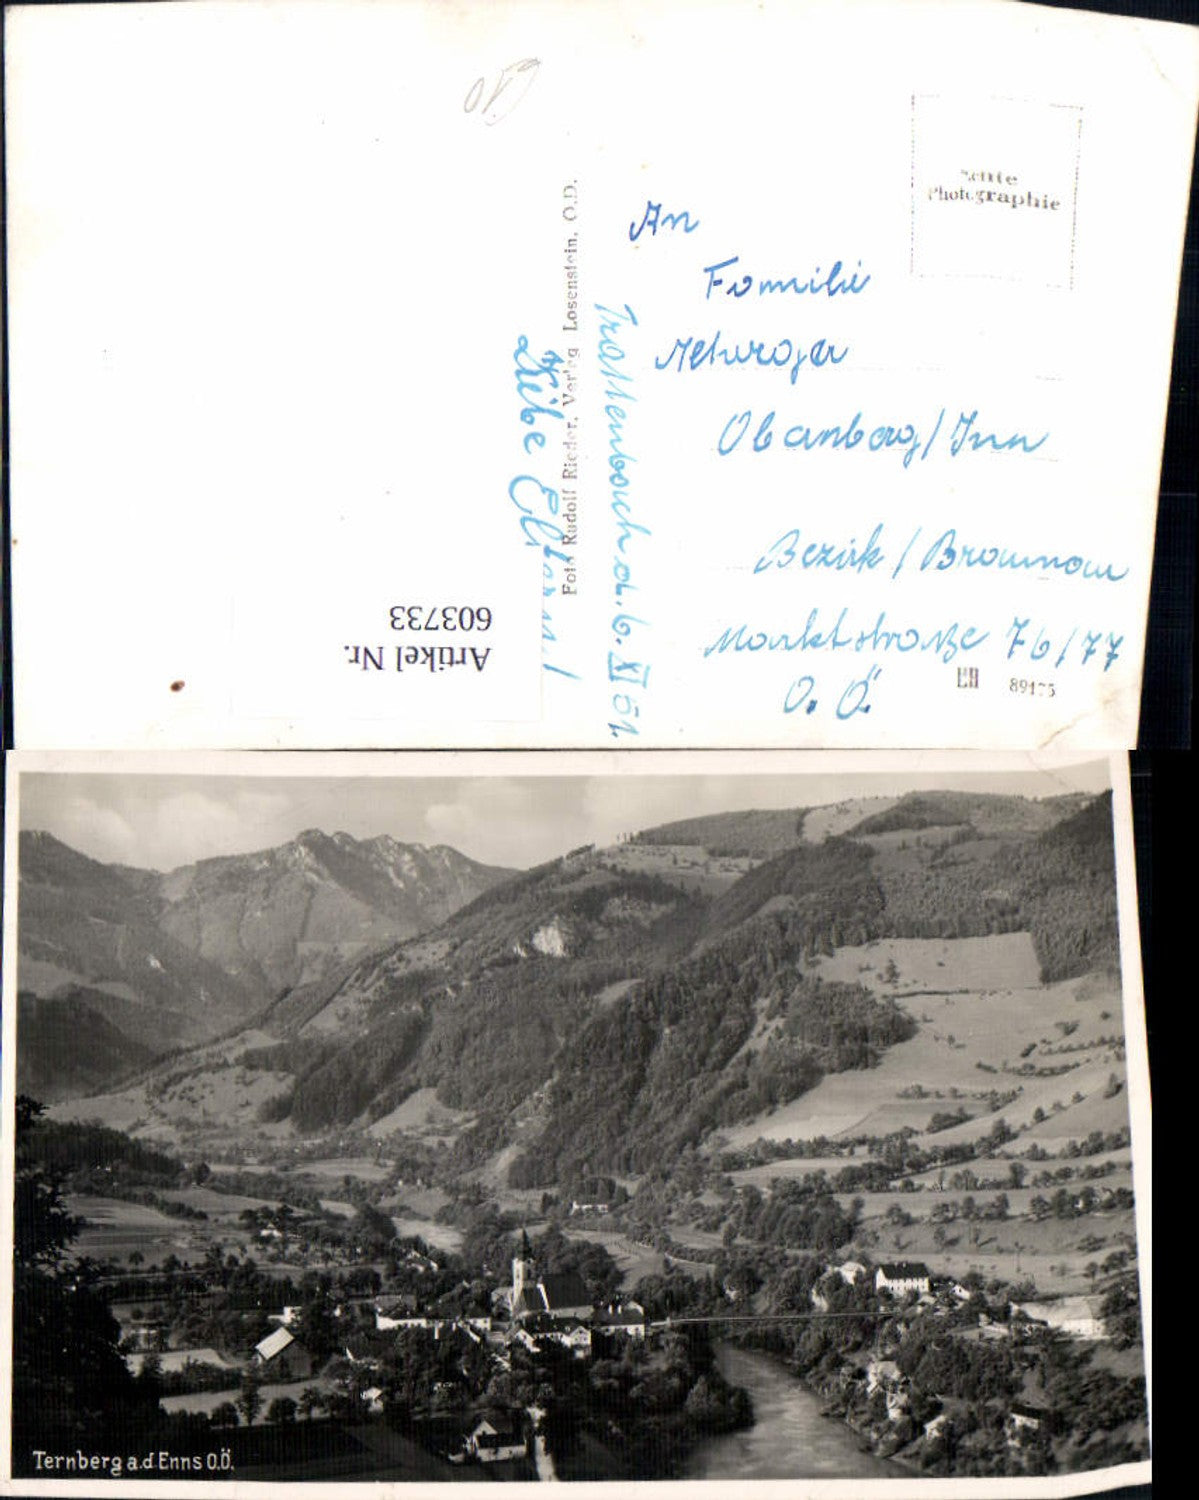 610
Echte
Photographie
An
Familie
Obernberg/Inn
Bezirk/Braunau
Marktstraße 76/77
O. Ö.
89175
Foto Rudolf Rieder, Verlag Losenstein, O.D.
Trattenbach d. 6. XI 51.
Liebe Eltern!
Artikel Nr.
603733
Ternberg a.d Enns O.Ö.